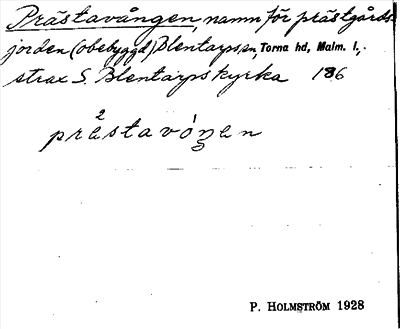 Prästavången, namn för prästgårds-
jorden (obebyggd) Blentarps sn, Torna hd, Malm. l.,
strax S. Blentarps kyrka 186
prästavóŋen
P. HOLMSTRÖM 1928